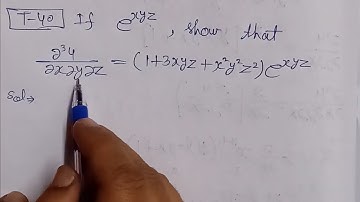 T-40 If e^{xyz}, show that
∂³4/∂x∂y∂z = (1+3xyz+x²y²z²)e^{xyz}
Sol→